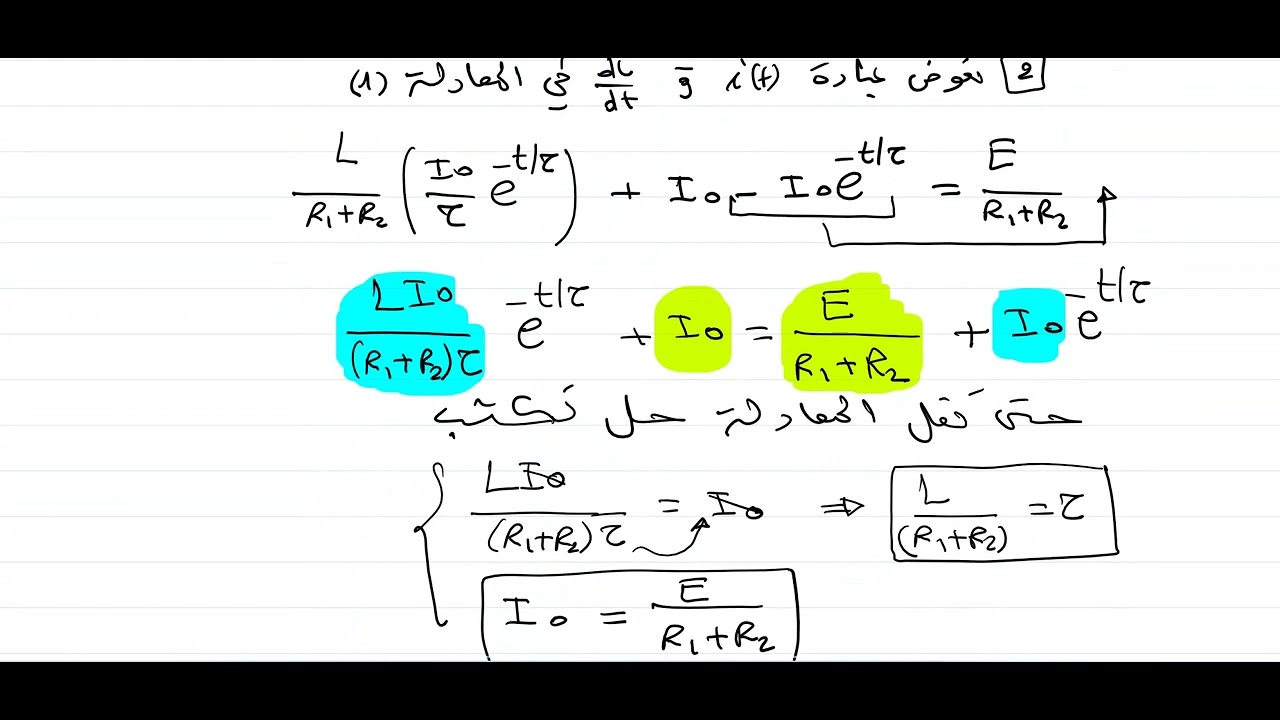 2 نعوض عبارة i(t) و di/dt في المعادلة (1)
L/(R₁+R₂) (I₀/τ e^(-t/τ)) + I₀ - I₀e^(-t/τ) = E/(R₁+R₂)
LI₀/((R₁+R₂)τ) e^(-t/τ) + I₀ = E/(R₁+R₂) + I₀ e^(-t/τ)
حتى تقبل المعادلة حل نكتب
LI₀/((R₁+R₂)τ) = I₀ ⇒ L/(R₁+R₂) = τ
I₀ = E/(R₁+R₂)